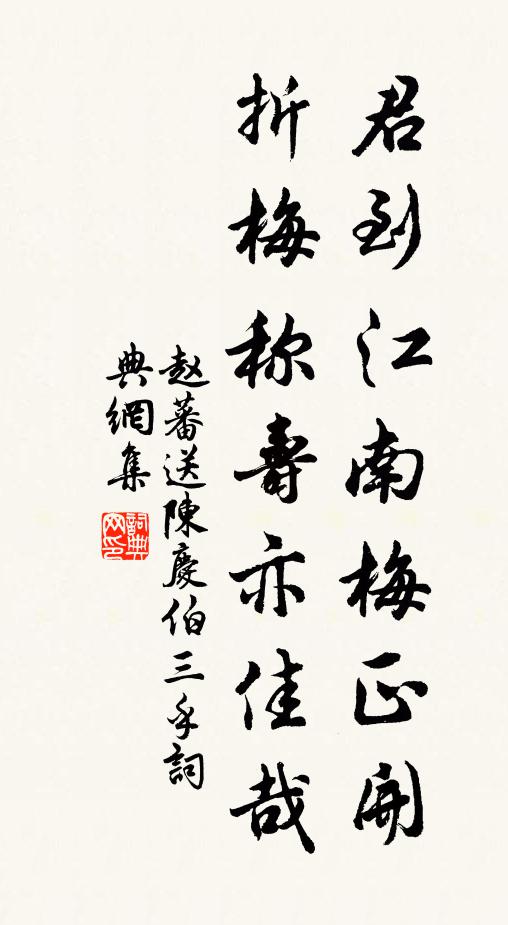 君到江南梅正開
折梅称壽亦佳哉
赵蕃送陳慶伯三手詞
典網集
詞典網印